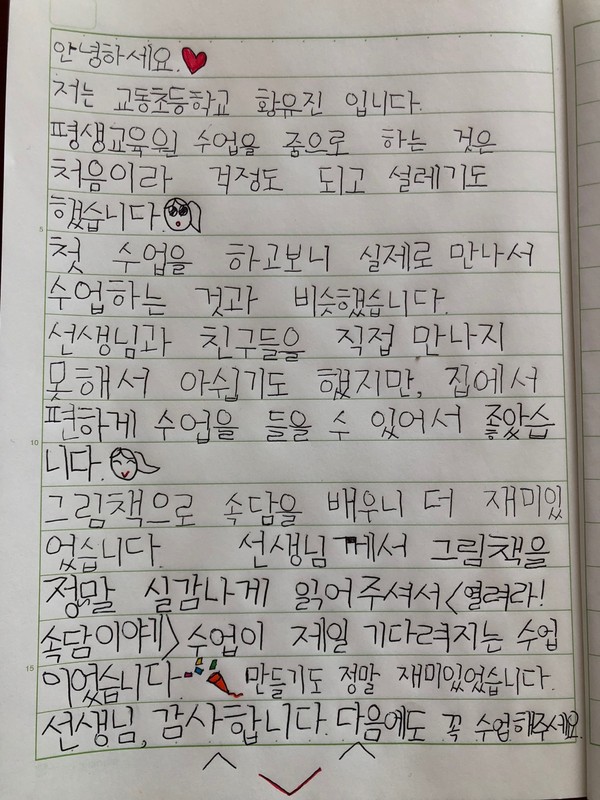 안녕하세요.
저는 교동초등학교 황유진 입니다.
평생교육원 수업을 줌으로 하는 것은
처음이라 걱정도 되고 설레기도
했습니다.
5
첫 수업을 하고보니 실제로 만나서
수업하는 것과 비슷했습니다.
선생님과 친구들을 직접 만나지
못해서 아쉽기도 했지만, 집에서
편하게 수업을 들을 수 있어서 좋았습
10
니다.
그림책으로 속담을 배우니 더 재미있
었습니다. 선생님께서 그림책을
정말 실감나게 읽어주셔서<열려라!
속담이야기> 수업이 제일 기다려지는 수업
15
이었습니다. 만들기도 정말 재미있었습니다.
선생님, 감사합니다. 다음에도 꼭 수업해주세요.